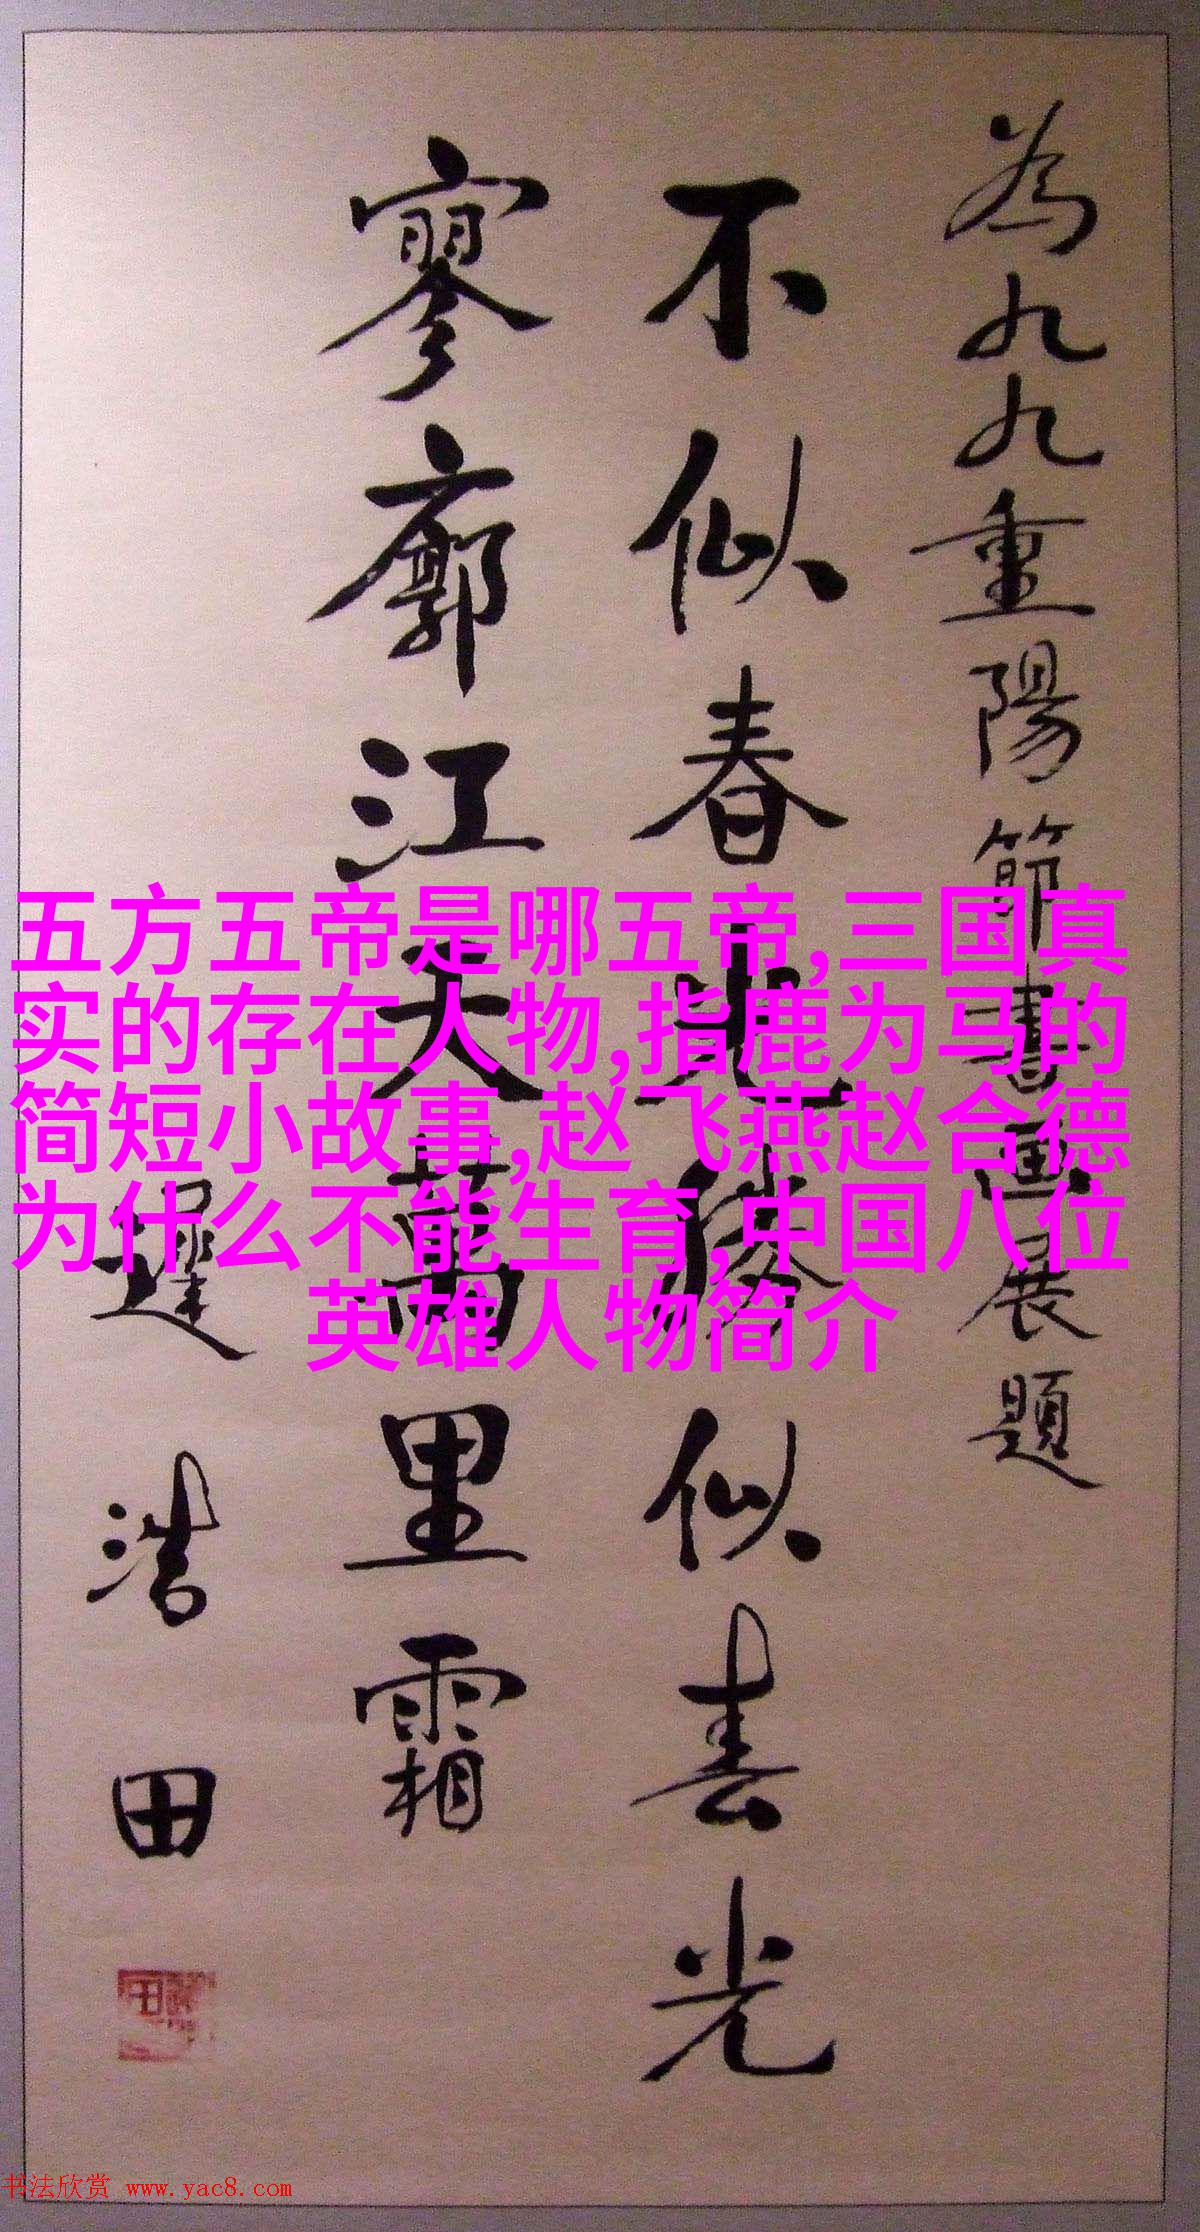 為九九重陽節書画展題
不似春光勝似春光
寥廓江天萬里霜
遲浩田
五方五帝是哪五帝,三国真
实的存在人物,指鹿为马的
简短小故事,赵飞燕赵合德
为什么不能生育,中国八位
英雄人物简介
书法欣赏 www.yac8.com